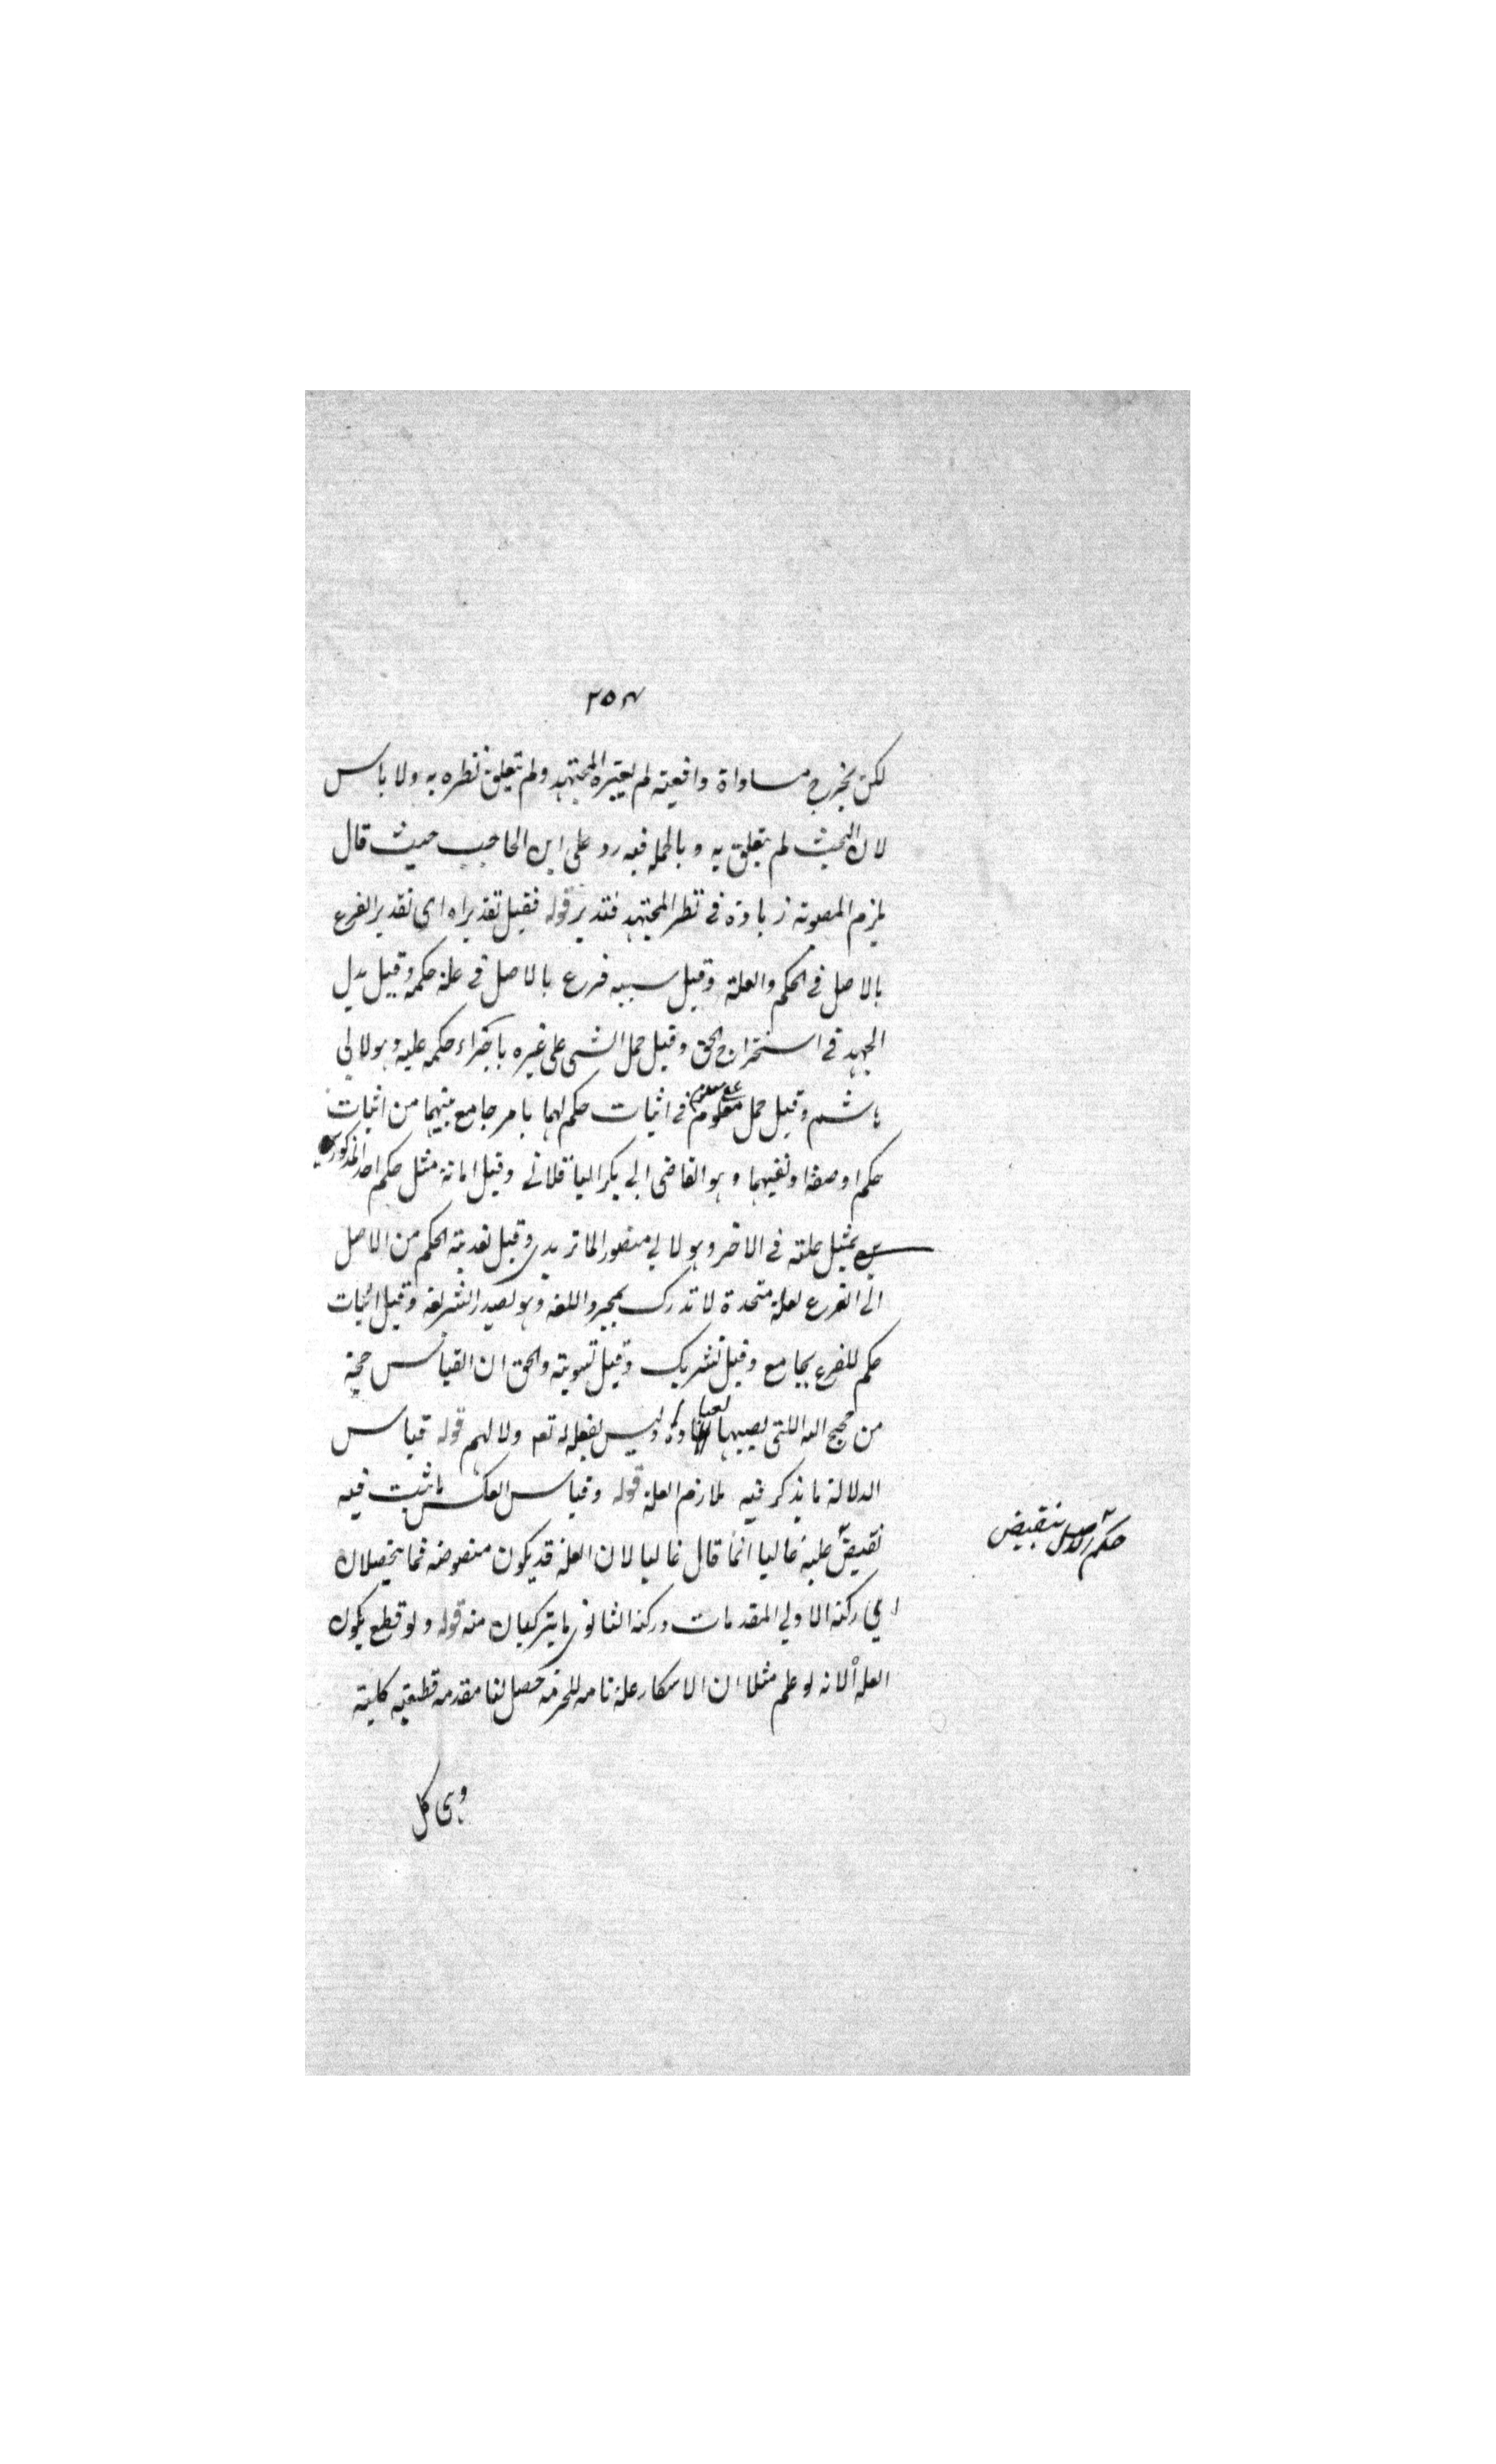 ٢٥٣
لكن يخرج مساواة واقعية لم يعتبره المجتهد ولم يتعلق نظره به ولا باس
لان البحث لم يتعلق به وبالجملة فيه رد على ابن الحاجب حيث قال
يلزم المصوبة زيادة في نظر المجتهد فتدبر قوله فقيل تقديراه اى تقدير الفرع
بالاصل في الحكم والعلة وقيل تشبيه فرع بالاصل في علة حكمه وقيل بذل
الجهد في استخراج الحق وقيل حمل الشى على غيره باجراء حكمه عليه وهو لابي
هاشم وقيل حمل معلوم على معلوم في اثبات حكم لهما بامر جامع بينهما من اثبات
حكم او صفة او نفيهما وهو القاضى ابي بكر الباقلاني وقيل ابانة مثل حكم احد المذكورين
بمثل علته في الاخر وهو لابي منصور الماتريدي وقيل تعدية الحكم من الاصل
الى الفرع لعلة متحدة لا تدرك بمجرد اللغة وهو لصدر الشريعة وقيل اثبات
حكم للفرع بجامع وقيل تشريك وقيل تسوية والحق ان القياس حجة
من حجج الله اللتى نصبها لعباده وليس بفعل له تعم ولا لهم قوله قياس
الدلالة ما يذكر فيه ملازم العلة قوله وقياس العكس ما ثبت فيه
نقيض علته غالبا انما قال غالبا لان العلة قد يكون منصوصة فما يحصلان
اي ركنه الاولي المقدمات وركنه الثانوي ما يتركبان منه قوله ولو قطع بكون
العلة الانه لو علم مثلا ان الاسكار علة تامة للحرمة حصل لنا مقدمة قطعية كلية
وهى كل
حكم الاصل بنقيض